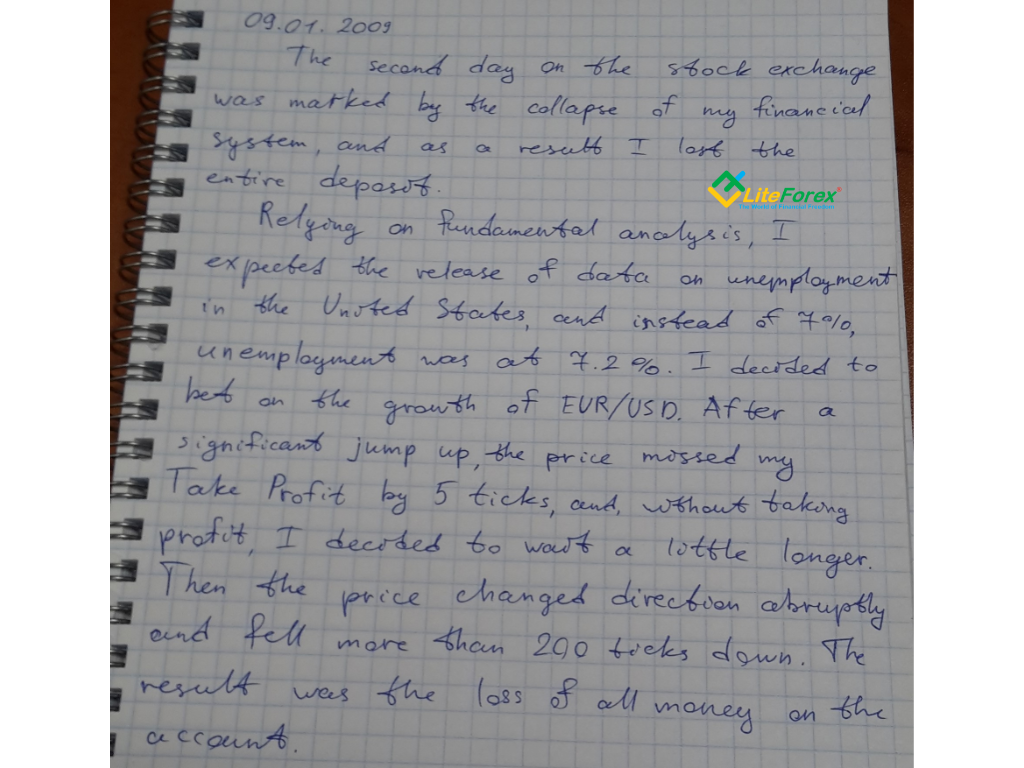 09.01.2009
The second day on the stock exchange
was marked by the collapse of my financial
system, and as a result I lost the
entire deposit.
LiteForex
The World of Financial Freedom
Relying on fundamental analysis, I
expected the release of data on unemployment
in the United States, and instead of 7%,
unemployment was at 7.2%. I decided to
bet on the growth of EUR/USD. After a
significant jump up, the price missed my
Take Profit by 5 ticks, and, without taking
profit, I decided to wait a little longer.
Then the price changed direction abruptly
and fell more than 200 ticks down. The
result was the loss of all money on the
account.